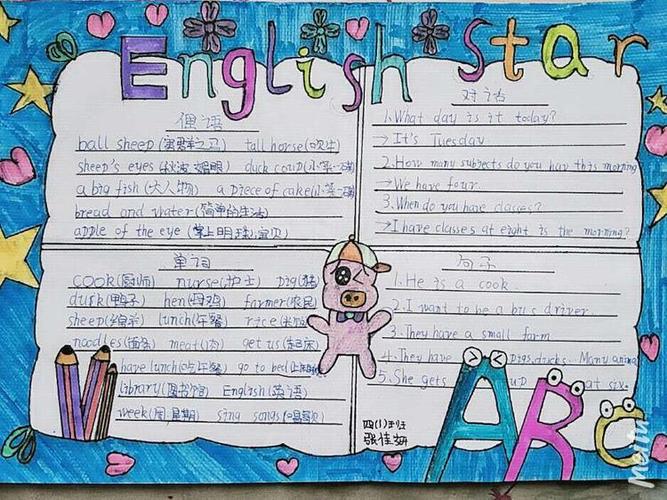 English Star
俚语
ball sheep(害群之马) tall horse(吹牛)
sheep's eyes(秋波 媚眼) duck coup(小菜一碟)
a big fish(大人物) a piece of cake(小菜一碟)
bread and water(简单的生活)
apple of the eye(掌上明珠;宝贝)
对话
1.What day is it today?
→It's Tuesday
2.How many subjects do you hav this morning
→We have four.
3.When do you have classes?
→I have classes at eight is the morning?
单词
COOK(厨师) nurse(护士) pig(猪)
duck(鸭子) hen(母鸡) farmer(农民)
sheep(绵羊) lunch(午餐) rice(米饭)
noodles(面条) meat(肉) get us(起床)
have lunch(吃午餐) go to bed
library(图书馆) English(英语)
week(周 星期) sing songs
句子
1.He is a cook
2.I want to be a bus driver
3.They have a small farm
4.They have pigs,ducks. Many anima
5.She gets up at six.
四(1)班
张佳妍
ABC
Meitu